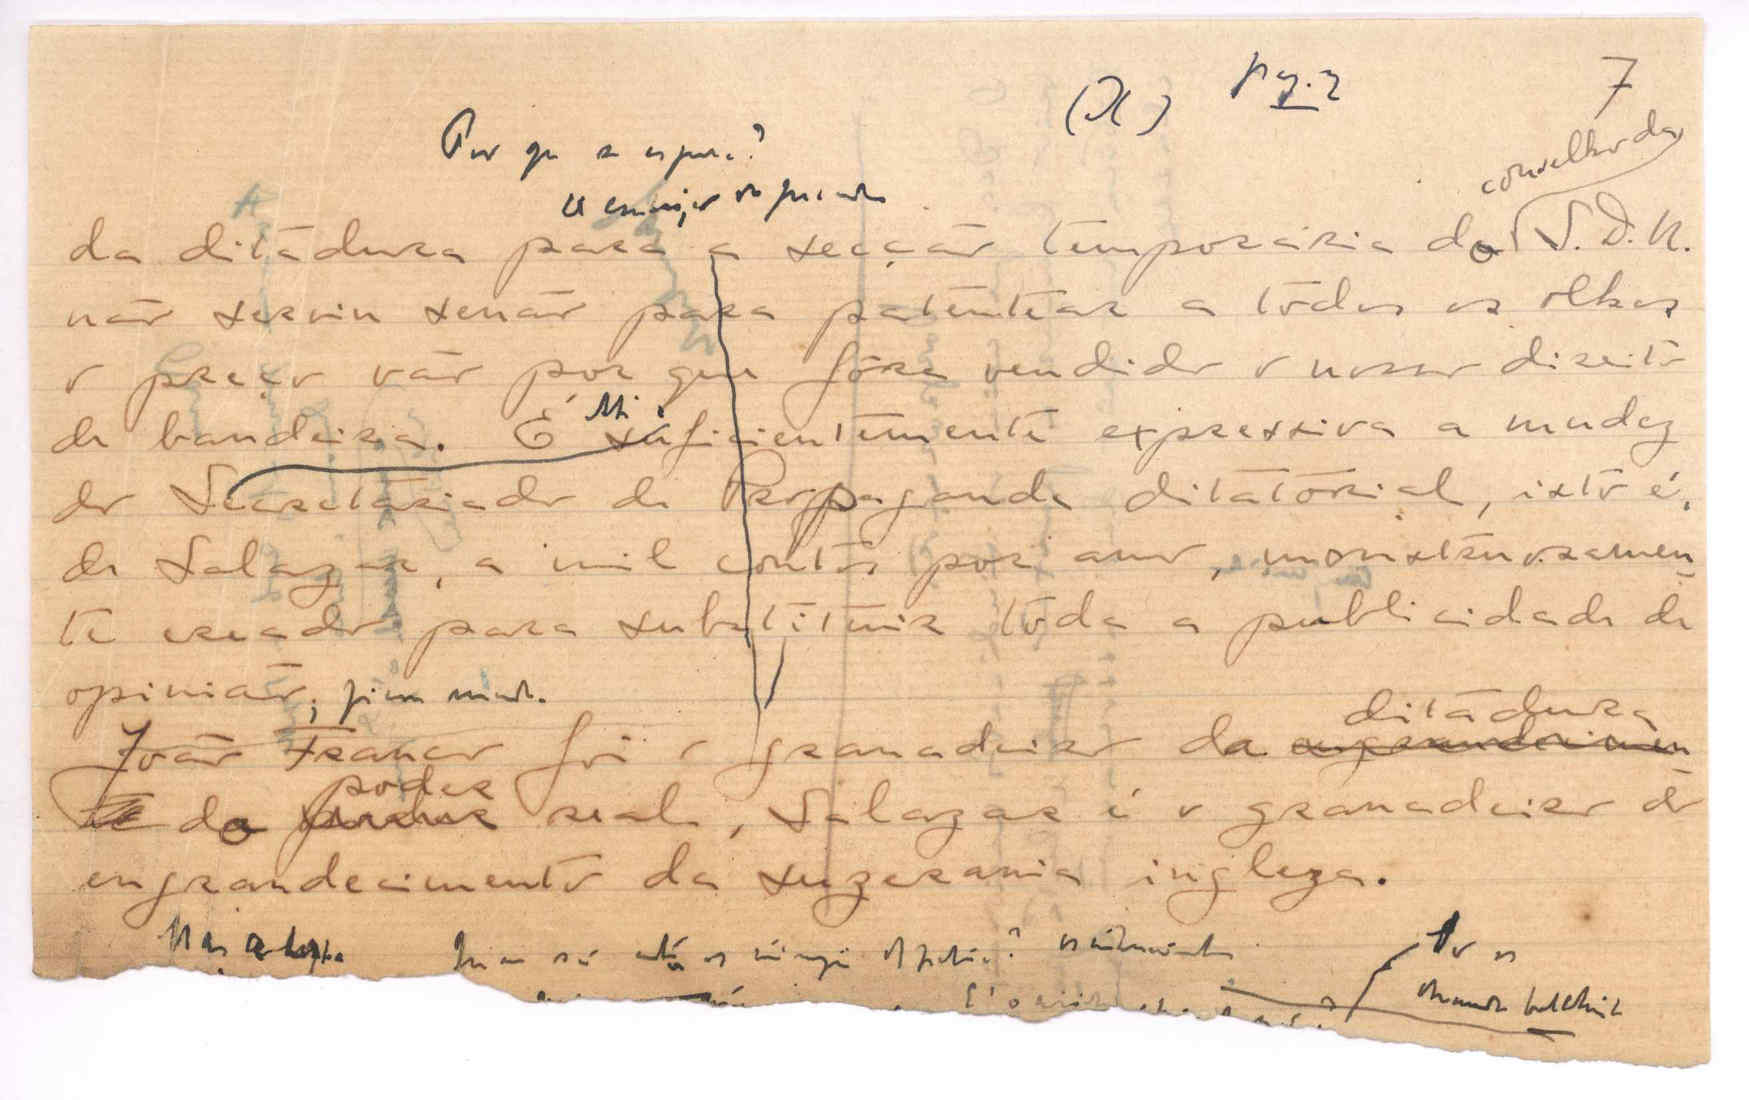 pag. 2
7
Por que se espera?
conselho da
da ditadura para a secção temporária do S.D.N.
não serviu senão para patentear a todos os olhos
o preço vão por que fôra vendido o nosso direito
de bandeira. É suficientemente expressiva a mudez
do Secretariado de Propaganda ditatorial, isto é,
de Salazar, a mil contos por ano, monstruosamen-
te creado para substituir toda a publicidade de
opinião; ficou mudo.
ditadura
João Franco foi o granadeiro da engrandecimen
poder
do real, Salazar é o granadeiro do
engrandecimento da suzerania ingleza.
Mas
Quem são os
É o